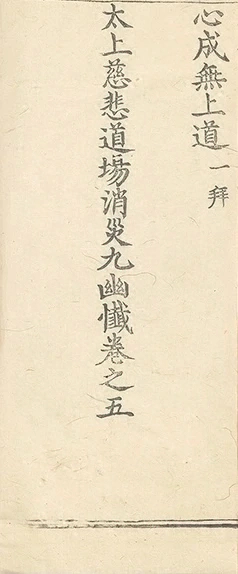 心成無上道 一拜
太上慈悲道場消災九幽懺卷之五